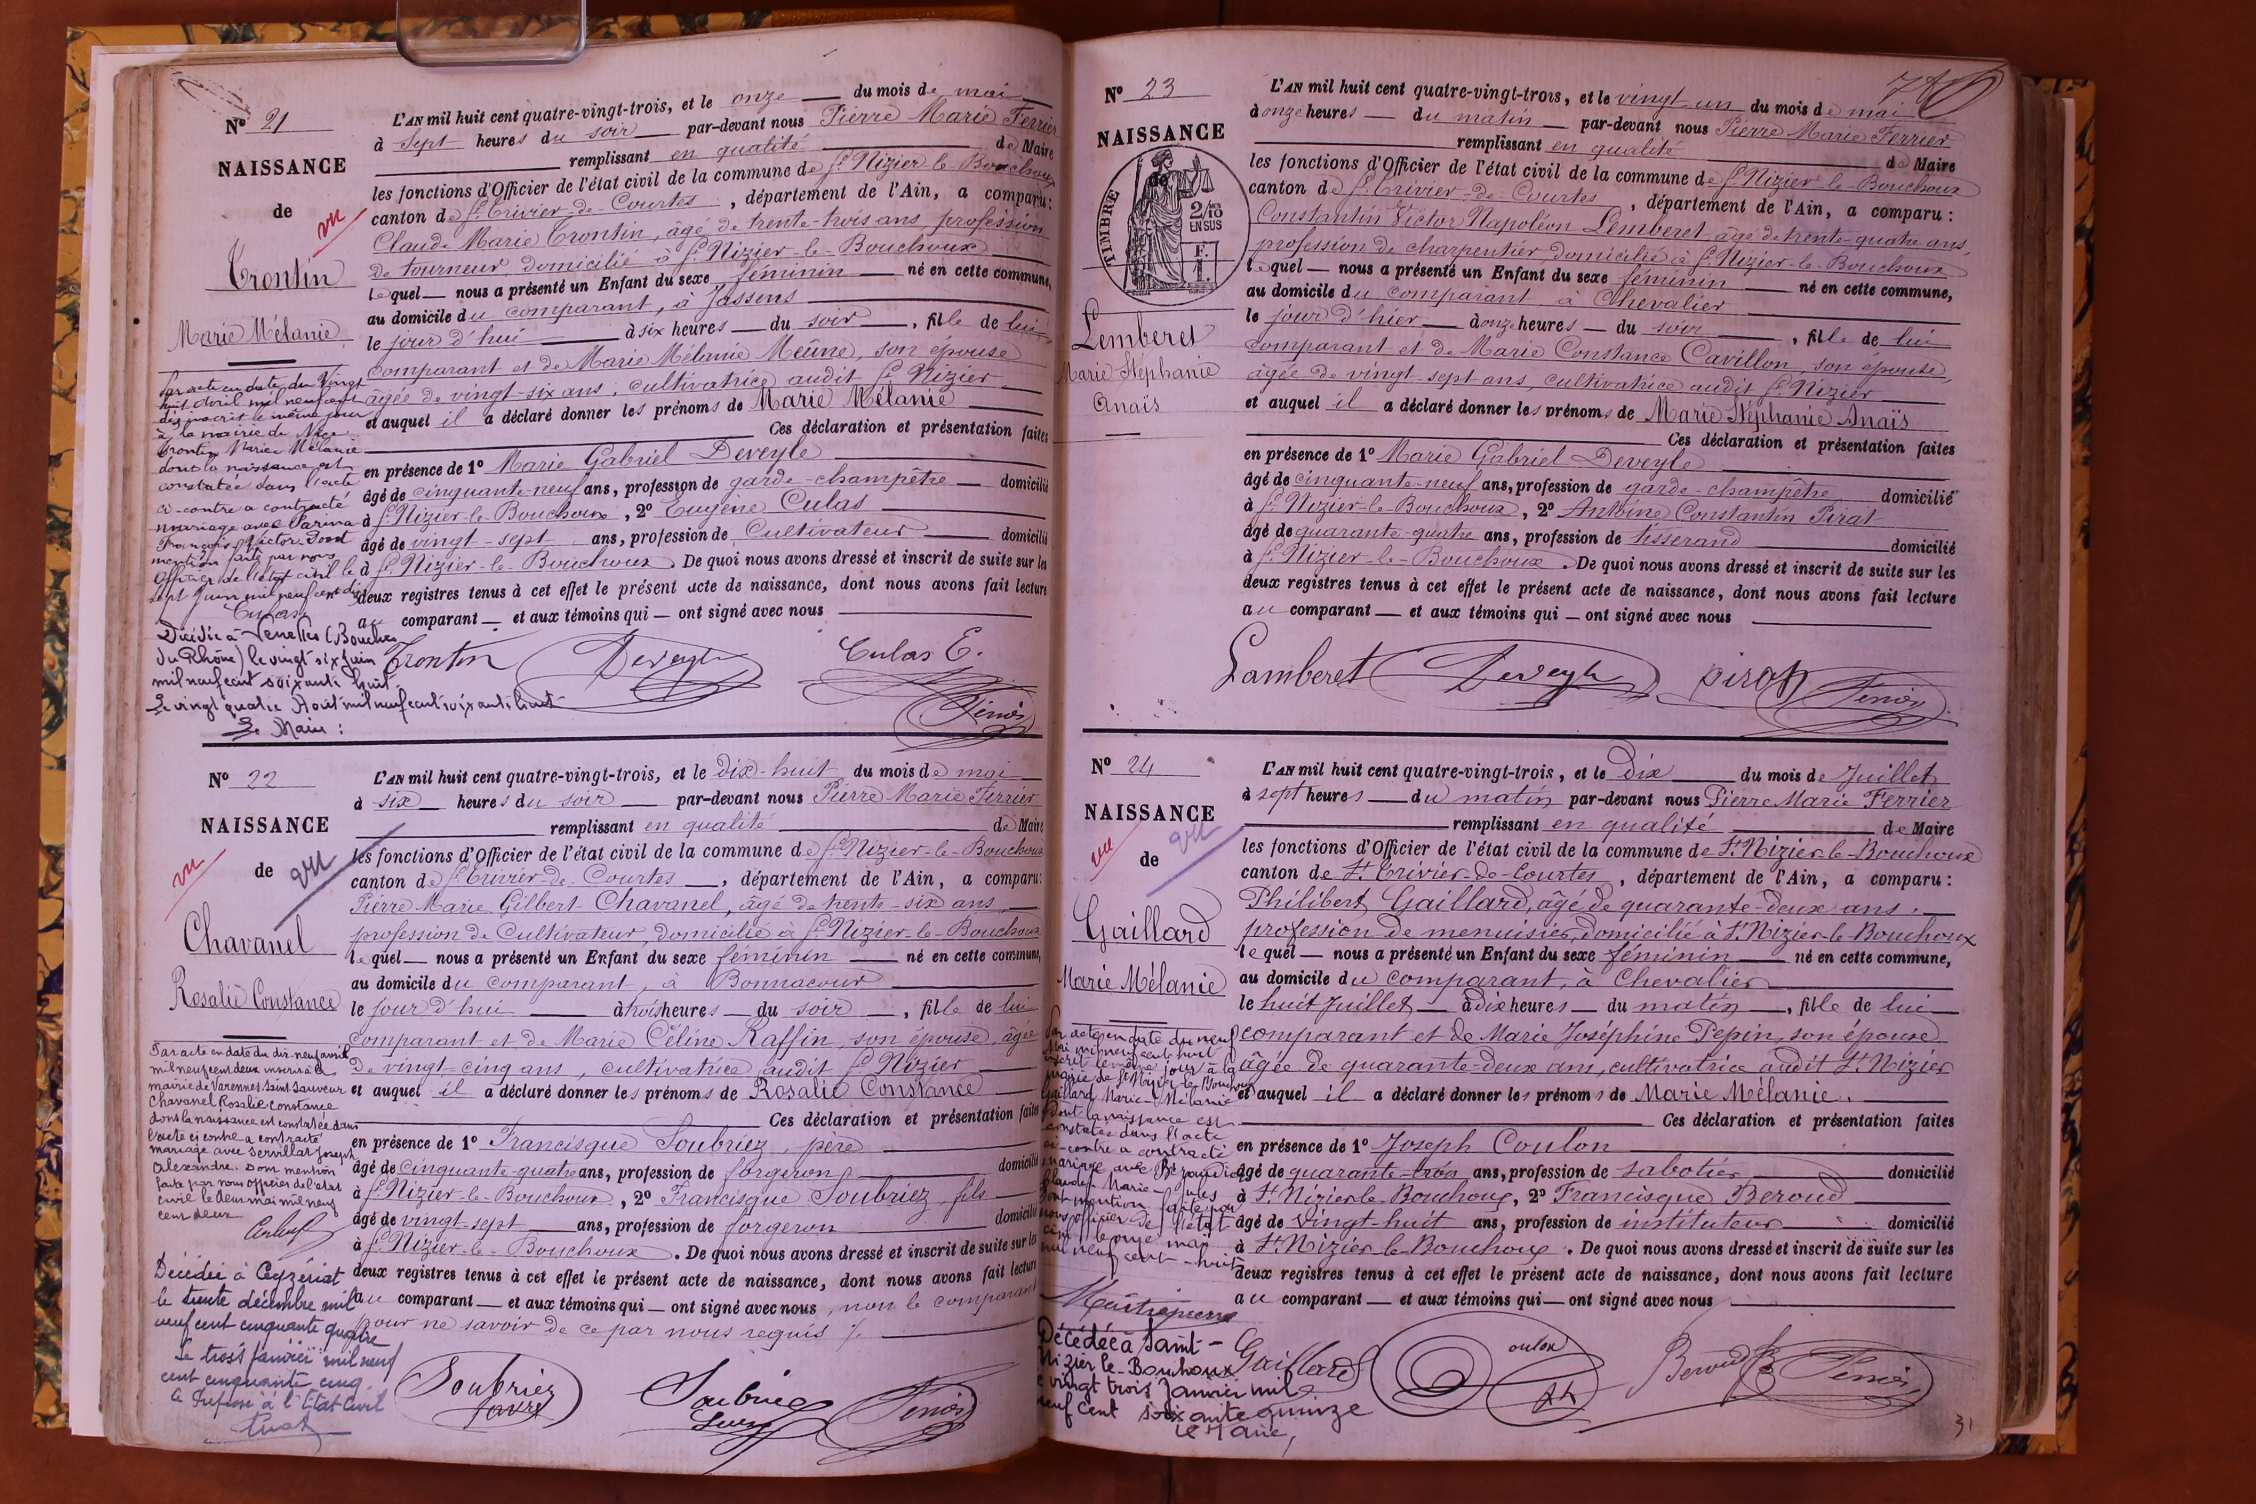 N° 21
NAISSANCE
de
vu
Trontin
Marie Mélanie
L'AN mil huit cent quatre-vingt-trois, et le onze du mois de mai
à sept heures du soir par-devant nous Pierre Marie Ferrier
remplissant en qualité de Maire
les fonctions d'Officier de l'état civil de la commune de St Nizier-le-Bouchoux
canton de St Trivier-de-Courtes, département de l'Ain, a comparu :
Claude Marie Trontin, âgé de trente-trois ans, profession
de tourneur, domicilié à St Nizier-le-Bouchoux
lequel nous a présenté un Enfant du sexe féminin né en cette commune,
au domicile du comparant, à Jassens
le jour d'hui à six heures du soir, fille de lui
comparant et de Marie Mélanie Meûne, son épouse
âgée de vingt-six ans, cultivatrice audit St Nizier
et auquel il a déclaré donner les prénoms de Marie Mélanie
Ces déclaration et présentation faites
en présence de 1° Marie Gabriel Deveyle
âgé de cinquante-neuf ans, profession de garde-champêtre domicilié
à St Nizier-le-Bouchoux, 2° Eugène Culas
âgé de vingt-sept ans, profession de Cultivateur domicilié
à St Nizier-le-Bouchoux. De quoi nous avons dressé et inscrit de suite sur les
deux registres tenus à cet effet le présent acte de naissance, dont nous avons fait lecture
au comparant et aux témoins qui ont signé avec nous
Trontin Deveyle Culas E.
Ferrier
Par acte en date du Vingt
huit avril mil neuf cent
dix inscrit le même jour
à la mairie de
Trontin Marie Mélanie
dont la naissance est
constatée dans l'acte
ci-contre a contracté
mariage avec Farina
François Victor. Dont
mention faite par nous
Officier de l'état civil le
sept Juin mil neuf cent dix
Culas
Décédée à Venelles (Bouches
du Rhône) le vingt six Juin
mil neuf cent soixante huit
Le vingt quatre Août mil neuf cent soixante huit
Le Maire :
N° 22
NAISSANCE
de
vu
vu
Chavanel
Rosalie Constance
L'AN mil huit cent quatre-vingt-trois, et le dix-huit du mois de mai
à six heures du soir par-devant nous Pierre Marie Ferrier
remplissant en qualité de Maire
les fonctions d'Officier de l'état civil de la commune de St Nizier-le-Bouchoux
canton de St Trivier-de-Courtes, département de l'Ain, a comparu:
Pierre Marie Gilbert Chavanel, âgé de trente-six ans,
profession de Cultivateur, domicilié à St Nizier-le-Bouchoux
lequel nous a présenté un Enfant du sexe féminin né en cette commune,
au domicile du comparant, à Bonnacour
le jour d'hui à trois heures du soir, fille de lui
comparant et de Marie Céline Raffin, son épouse, âgée
de vingt-cinq ans, cultivatrice audit St Nizier
et auquel il a déclaré donner les prénoms de Rosalie Constance
Ces déclaration et présentation faites
en présence de 1° Francisque Soubriez, père
âgé de cinquante-quatre ans, profession de forgeron domicilié
à St Nizier-le-Bouchoux, 2° Francisque Soubriez fils
âgé de vingt-sept ans, profession de forgeron domicilié
à St Nizier-le-Bouchoux. De quoi nous avons dressé et inscrit de suite sur les
deux registres tenus à cet effet le présent acte de naissance, dont nous avons fait lecture
au comparant et aux témoins qui ont signé avec nous, non le comparant
pour ne savoir de ce par nous requis %.
Soubriez Soubriez Ferrier
Par acte en date du dix-neuf avril
mil neuf cent deux inscrit à la
mairie de Varennes Saint Sauveur
Chavanel Rosalie Constance
dont la naissance est constatée dans
l'acte ci contre a contracté
mariage avec Servillat Joseph
Alexandre. Dont mention
faite par nous officier de l'état
civil le deux mai mil neuf
cent deux
Décédée à Ceyzériat
le trente décembre mil
neuf cent cinquante quatre
Le trois Janvier mil neuf
cent cinquante cinq
Le Préposé à l'Etat Civil
N° 23
NAISSANCE
de
TIMBRE
2/10 EN SUS
F.
1.
Lemberet
Marie Stéphanie
Anaïs
L'AN mil huit cent quatre-vingt-trois, et le vingt-un du mois de mai
à onze heures du matin par-devant nous Pierre Marie Ferrier
remplissant en qualité de Maire
les fonctions d'Officier de l'état civil de la commune de St Nizier-le-Bouchoux
canton de St Trivier-de-Courtes, département de l'Ain, a comparu :
Constantin Victor Napoléon Lemberet, âgé de trente-quatre ans,
profession de charpentier, domicilié à St Nizier-le-Bouchoux
lequel nous a présenté un Enfant du sexe féminin né en cette commune,
au domicile du comparant à Chevalier
le jour d'hier à onze heures du soir, fille de lui
comparant et de Marie Constance Cavillon, son épouse
âgée de vingt-sept ans, cultivatrice audit St Nizier
et auquel il a déclaré donner les prénoms de Marie Stéphanie Anaïs
Ces déclaration et présentation faites
en présence de 1° Marie Gabriel Deveyle
âgé de cinquante-neuf ans, profession de garde-champêtre domicilié
à St Nizier-le-Bouchoux, 2° Antoine Constantin Pirat
âgé de quarante-quatre ans, profession de tisserand domicilié
à St Nizier-le-Bouchoux. De quoi nous avons dressé et inscrit de suite sur les
deux registres tenus à cet effet le présent acte de naissance, dont nous avons fait lecture
au comparant et aux témoins qui ont signé avec nous
Lamberet Deveyle pirat Ferrier
N° 24
NAISSANCE
de
vu
vu
Gaillard
Marie Mélanie
L'AN mil huit cent quatre-vingt-trois, et le Dix du mois de Juillet
à sept heures du matin par-devant nous Pierre Marie Ferrier
remplissant en qualité de Maire
les fonctions d'Officier de l'état civil de la commune de St Nizier-le-Bouchoux
canton de St Trivier-de-Courtes, département de l'Ain, a comparu :
Philibert Gaillard, âgé de quarante-deux ans,
profession de menuisier, domicilié à St Nizier-le-Bouchoux
lequel nous a présenté un Enfant du sexe féminin né en cette commune,
au domicile du comparant, à Chevalier
le huit Juillet à dix heures du matin, fille de lui
comparant et de Marie Joséphine Pepin, son épouse
âgée de quarante-deux ans, cultivatrice audit St Nizier
et auquel il a déclaré donner les prénoms de Marie Mélanie.
Ces déclaration et présentation faites
en présence de 1° Joseph Coulon
âgé de quarante-trois ans, profession de sabotier domicilié
à St Nizier le Bouchoux, 2° Francisque Beroud
âgé de vingt-huit ans, profession de instituteur domicilié
à St Nizier le Bouchoux. De quoi nous avons dressé et inscrit de suite sur les
deux registres tenus à cet effet le présent acte de naissance, dont nous avons fait lecture
au comparant et aux témoins qui ont signé avec nous
Gaillard Coulon Beroud Ferrier
Par acte en date du neuf
Mai mil neuf cent huit
inscrit le même jour à la
mairie de St Nizier le Bouchoux
Gaillard Marie Mélanie
dont la naissance est
constatée dans l'acte
ci-contre a contracté
mariage avec
Claude Marie Jules
dont mention faite par
nous officier de l'état
civil le onze mai
mil neuf cent huit
Décédée à Saint-
Nizier le-Bouhoux
le vingt trois Janvier mil
neuf cent soixante quinze
Le Maire,
31